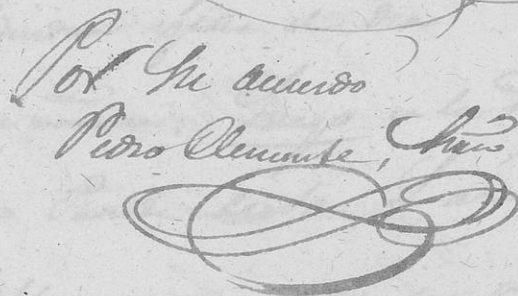 Por su acuerdo
Pedro Clemente, Srio